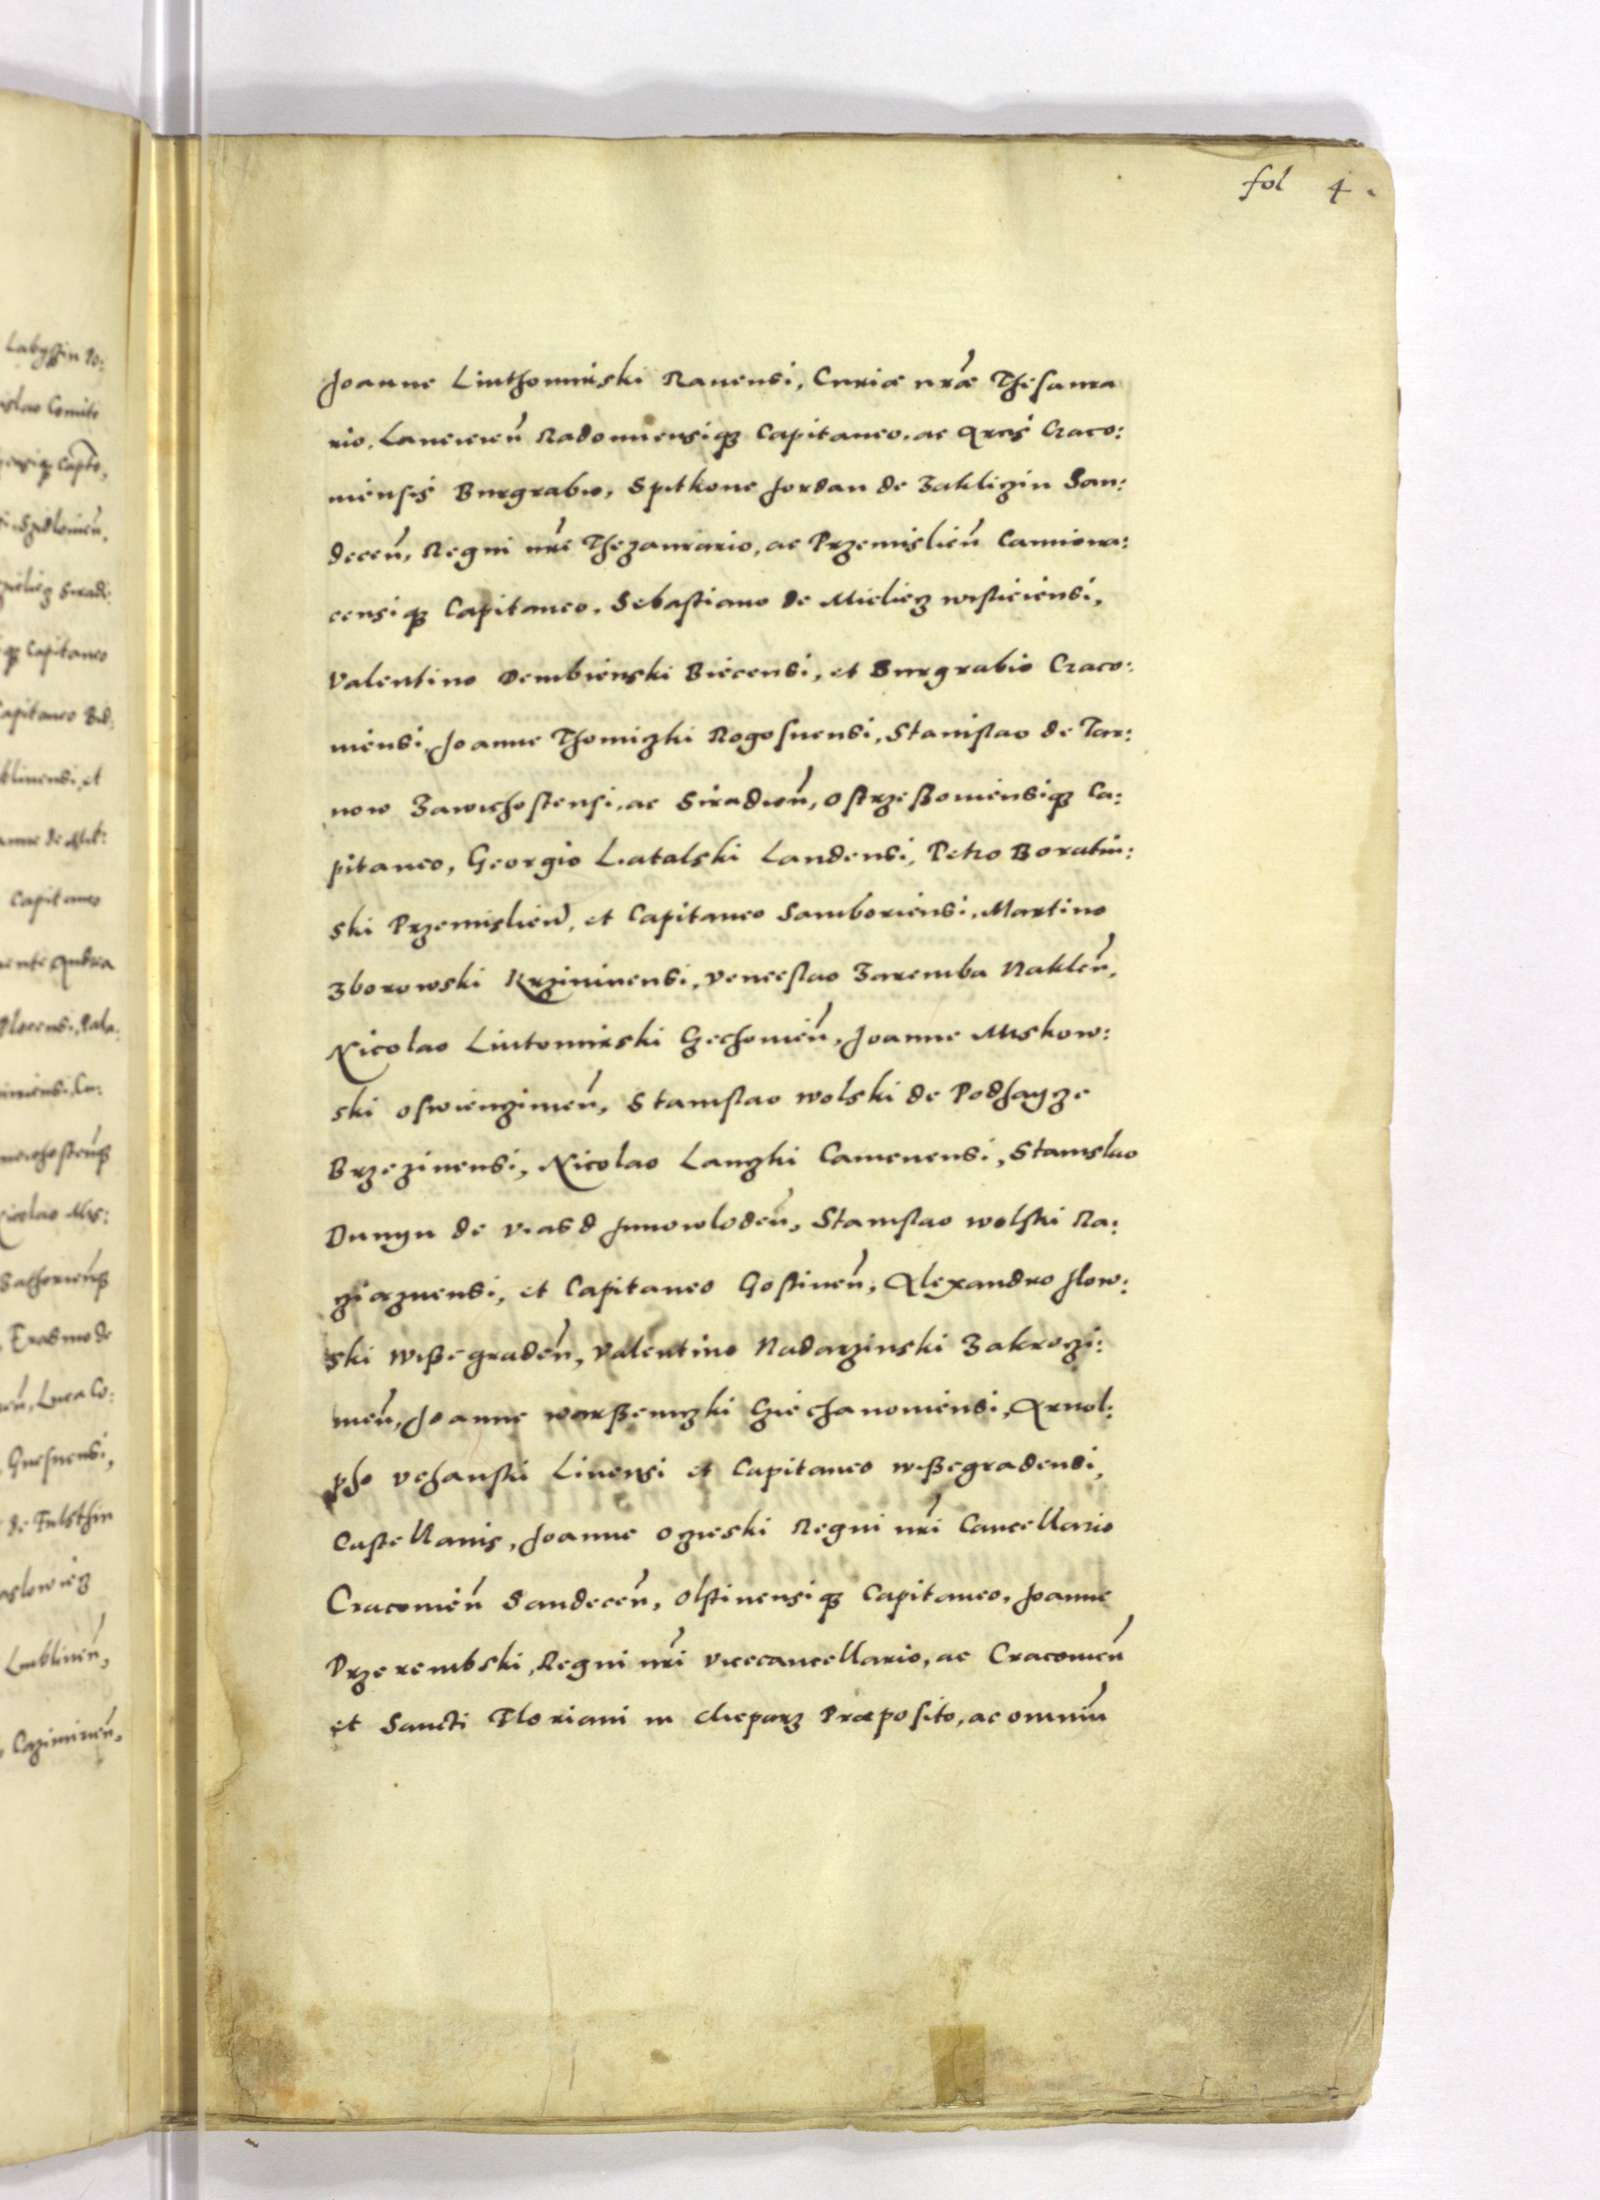 fol 4.
Joanne Liuthomirski Rauensi, Curiæ nr̃æ Thesaura
rio, Lancicieñ Radomiensiq3 Capitaneo, ac Arcis Craco:
uiensis Burgrabio, Spitkone Jordan de Zakliczin San:
deceñ, Regni nr̃i Thezaurario, ac Przemislieñ Camiona:
censiq3 Capitaneo, Sebastiano de Mielicz wisliciensi,
Valentino Dembienski Biecensi, et Burgrabio Craco:
uiensi, Joanne Thomizki Rogosnensi, Stanislao de Tar:
now Zawichostensi, ac Siradieñ, Ostrzeßouiensiq3 Ca:
pitaneo, Georgio Latalski Landensi, Petro Boratin:
ski Przemislieñ, et Capitaneo Samboriensi, Martino
Zborowski Krziuinensi, Venceslao Zaremba Nakleñ,
Nicolao Liutomirski Czechouieñ, Joanne Miskow:
ski Oswienzimeñ, Stanislao wolski de Podhaycze
Brzezinensi, Nicolao Lanzki Camenensi, Stanislao
Dunyn de Viasd Junowlodeñ, Stanislao wolski Ra:
ziaznensi, et Capitaneo Gostineñ, Alexandro Ilow:
ski wißegradeñ, Valentino Nadarzinski Zakroczi:
meñ, Joanne warßewizki Cziechanouiensi, Arnol:
pho Vchanski Liuensi et Capitaneo wißegradensi,
Castellanis, Joanne Oczieski Regni nr̃i Cancellario
Cracouieñ Sandeceñ, Olstinensiq3 Capitaneo, Joanne
Przerembski, Regni nr̃i Vicecancellario, ac Cracouieñ
et Sancti Floriani in Cleparz Præposito, ac omniũ
Labyssin
Comite
Capitaneo
Capitaneo
Capitaneo
Gnesnensi,
de Fulsthin
Lublineñ,